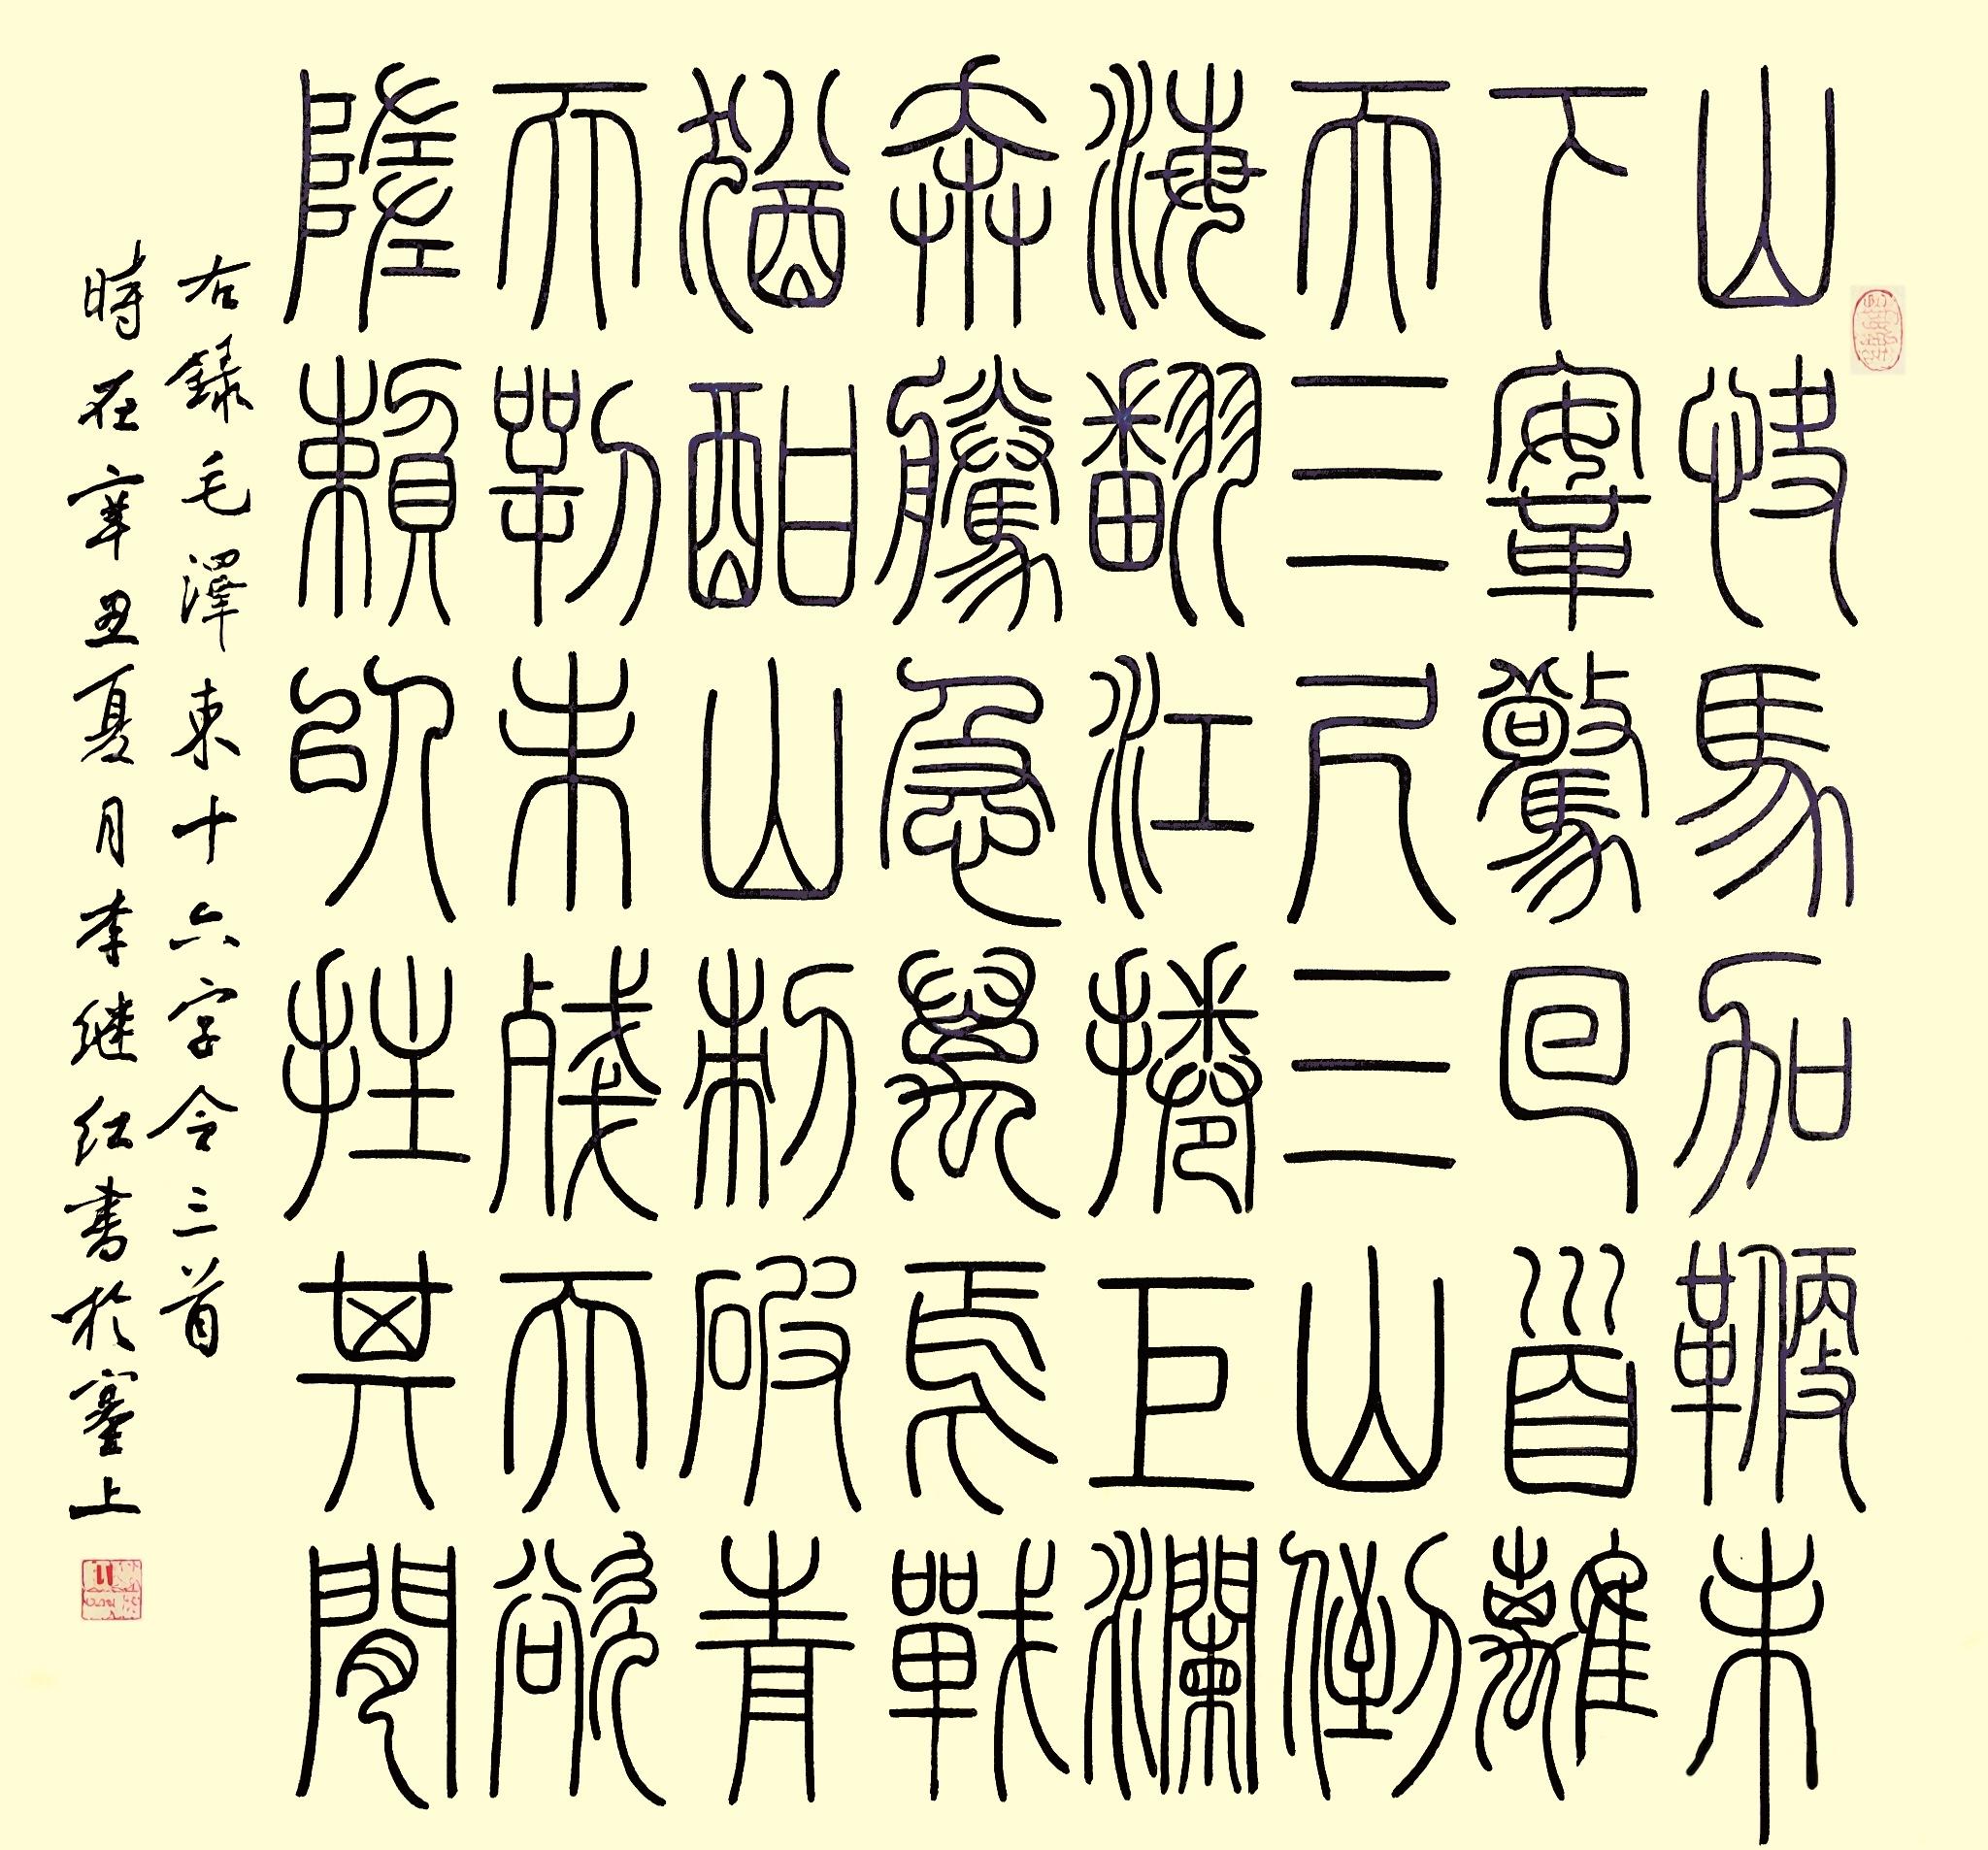 山快馬加鞭未
下鞌驚回首離
天三尺三山倒
海翻江捲巨瀾
奔騰急萬馬戰
猶酣山刺破青
天鍔未殘天欲
墮賴以拄其間
右錄毛澤東十六字令三首
時在辛丑夏月李继红書於塞上